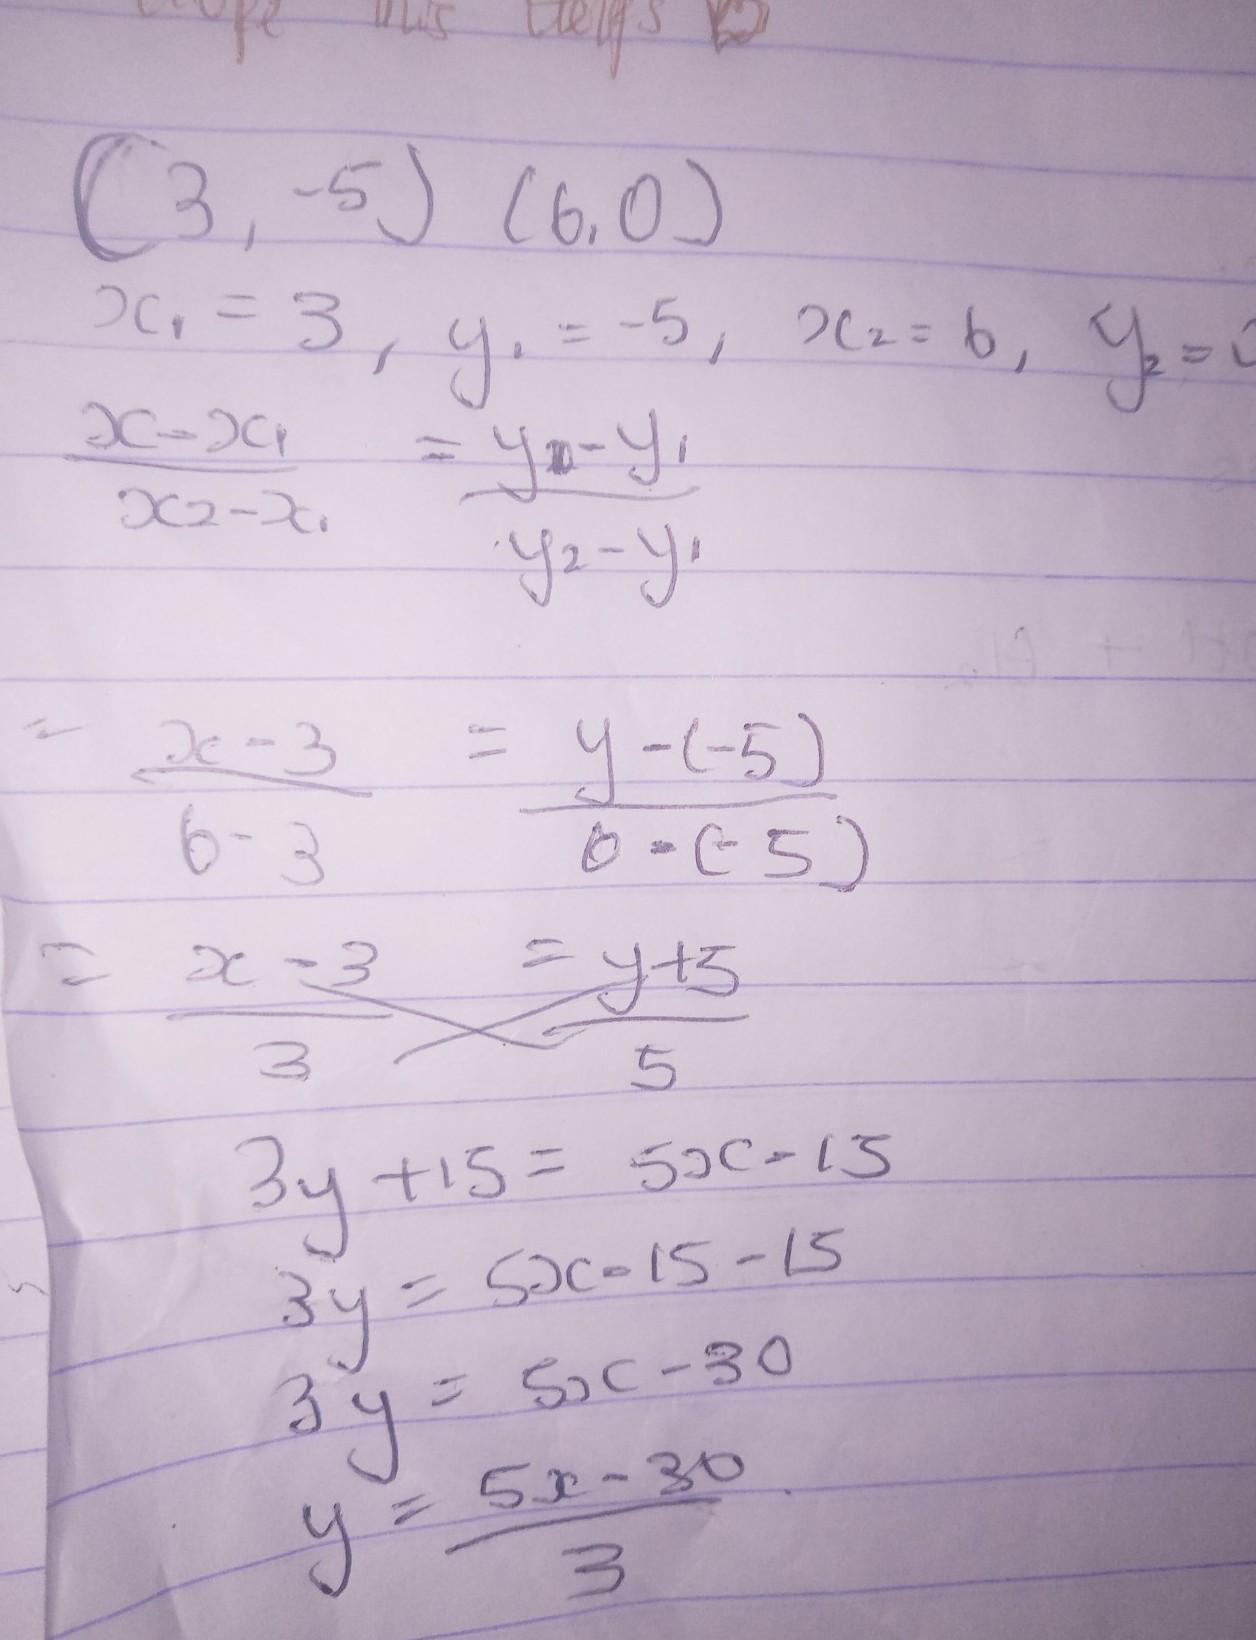 this Helps
(3, -5) (6, 0)
x₁ = 3, y₁ = -5, x₂ = 6, y₂ =
x - x₁ / x₂ - x₁ = y - y₁ / y₂ - y₁
= x - 3 / 6 - 3 = y - (-5) / 0 - (-5)
= x - 3 / 3 = y + 5 / 5
3y + 15 = 5x - 15
3y = 5x - 15 - 15
3y = 5x - 30
y = 5x - 30 / 3